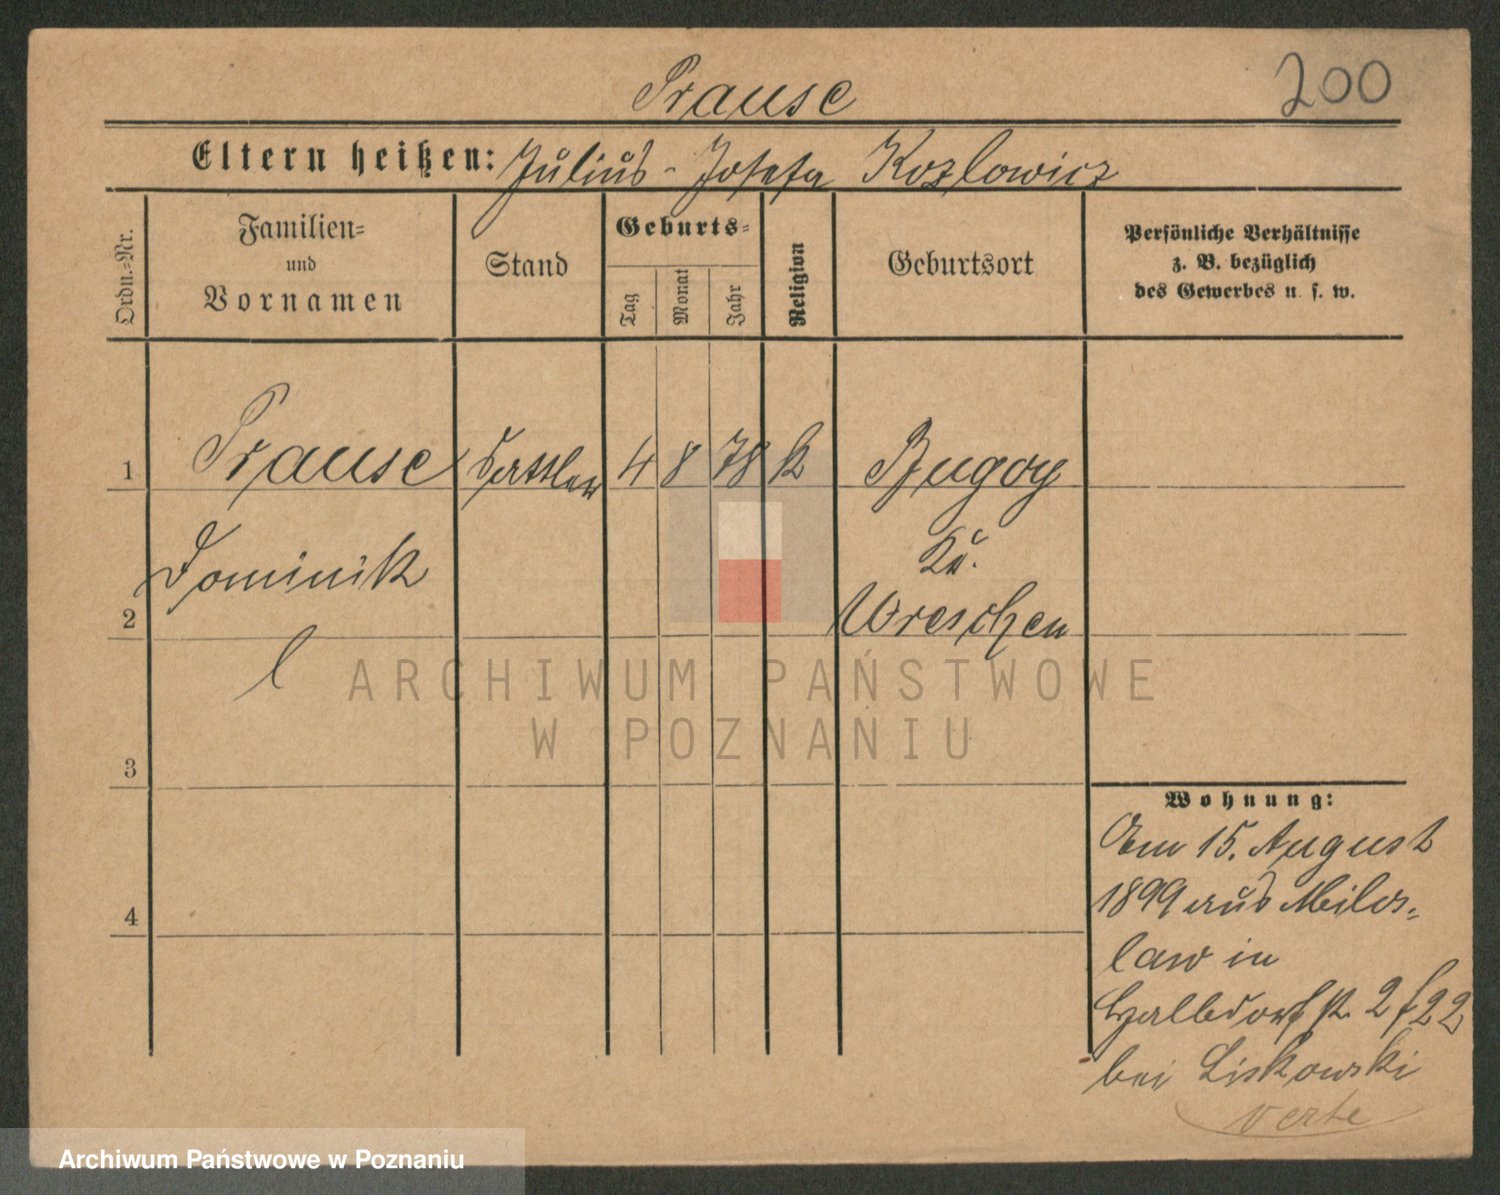 200
Prause
Eltern heißen: Julius - Josefa Kozlowicz
Ordn.-Nr.
Familien-
und
Vornamen
Stand
Geburts-
Tag
Monat
Jahr
Religion
Geburtsort
Persönliche Verhältnisse
z. B. bezüglich
des Gewerbes u. s. w.
1 Prause Sattler 4 8 78 k Bugoy
Dominik Kr.
2 Wreschen
l
ARCHIWUM PAŃSTWOWE
W POZNANIU
3
Wohnung:
Am 15. August
1899 aus Milos=
law in
Halbdorfstr. 2 f 22
bei Liskowski
verte
4
Archiwum Państwowe w Poznaniu